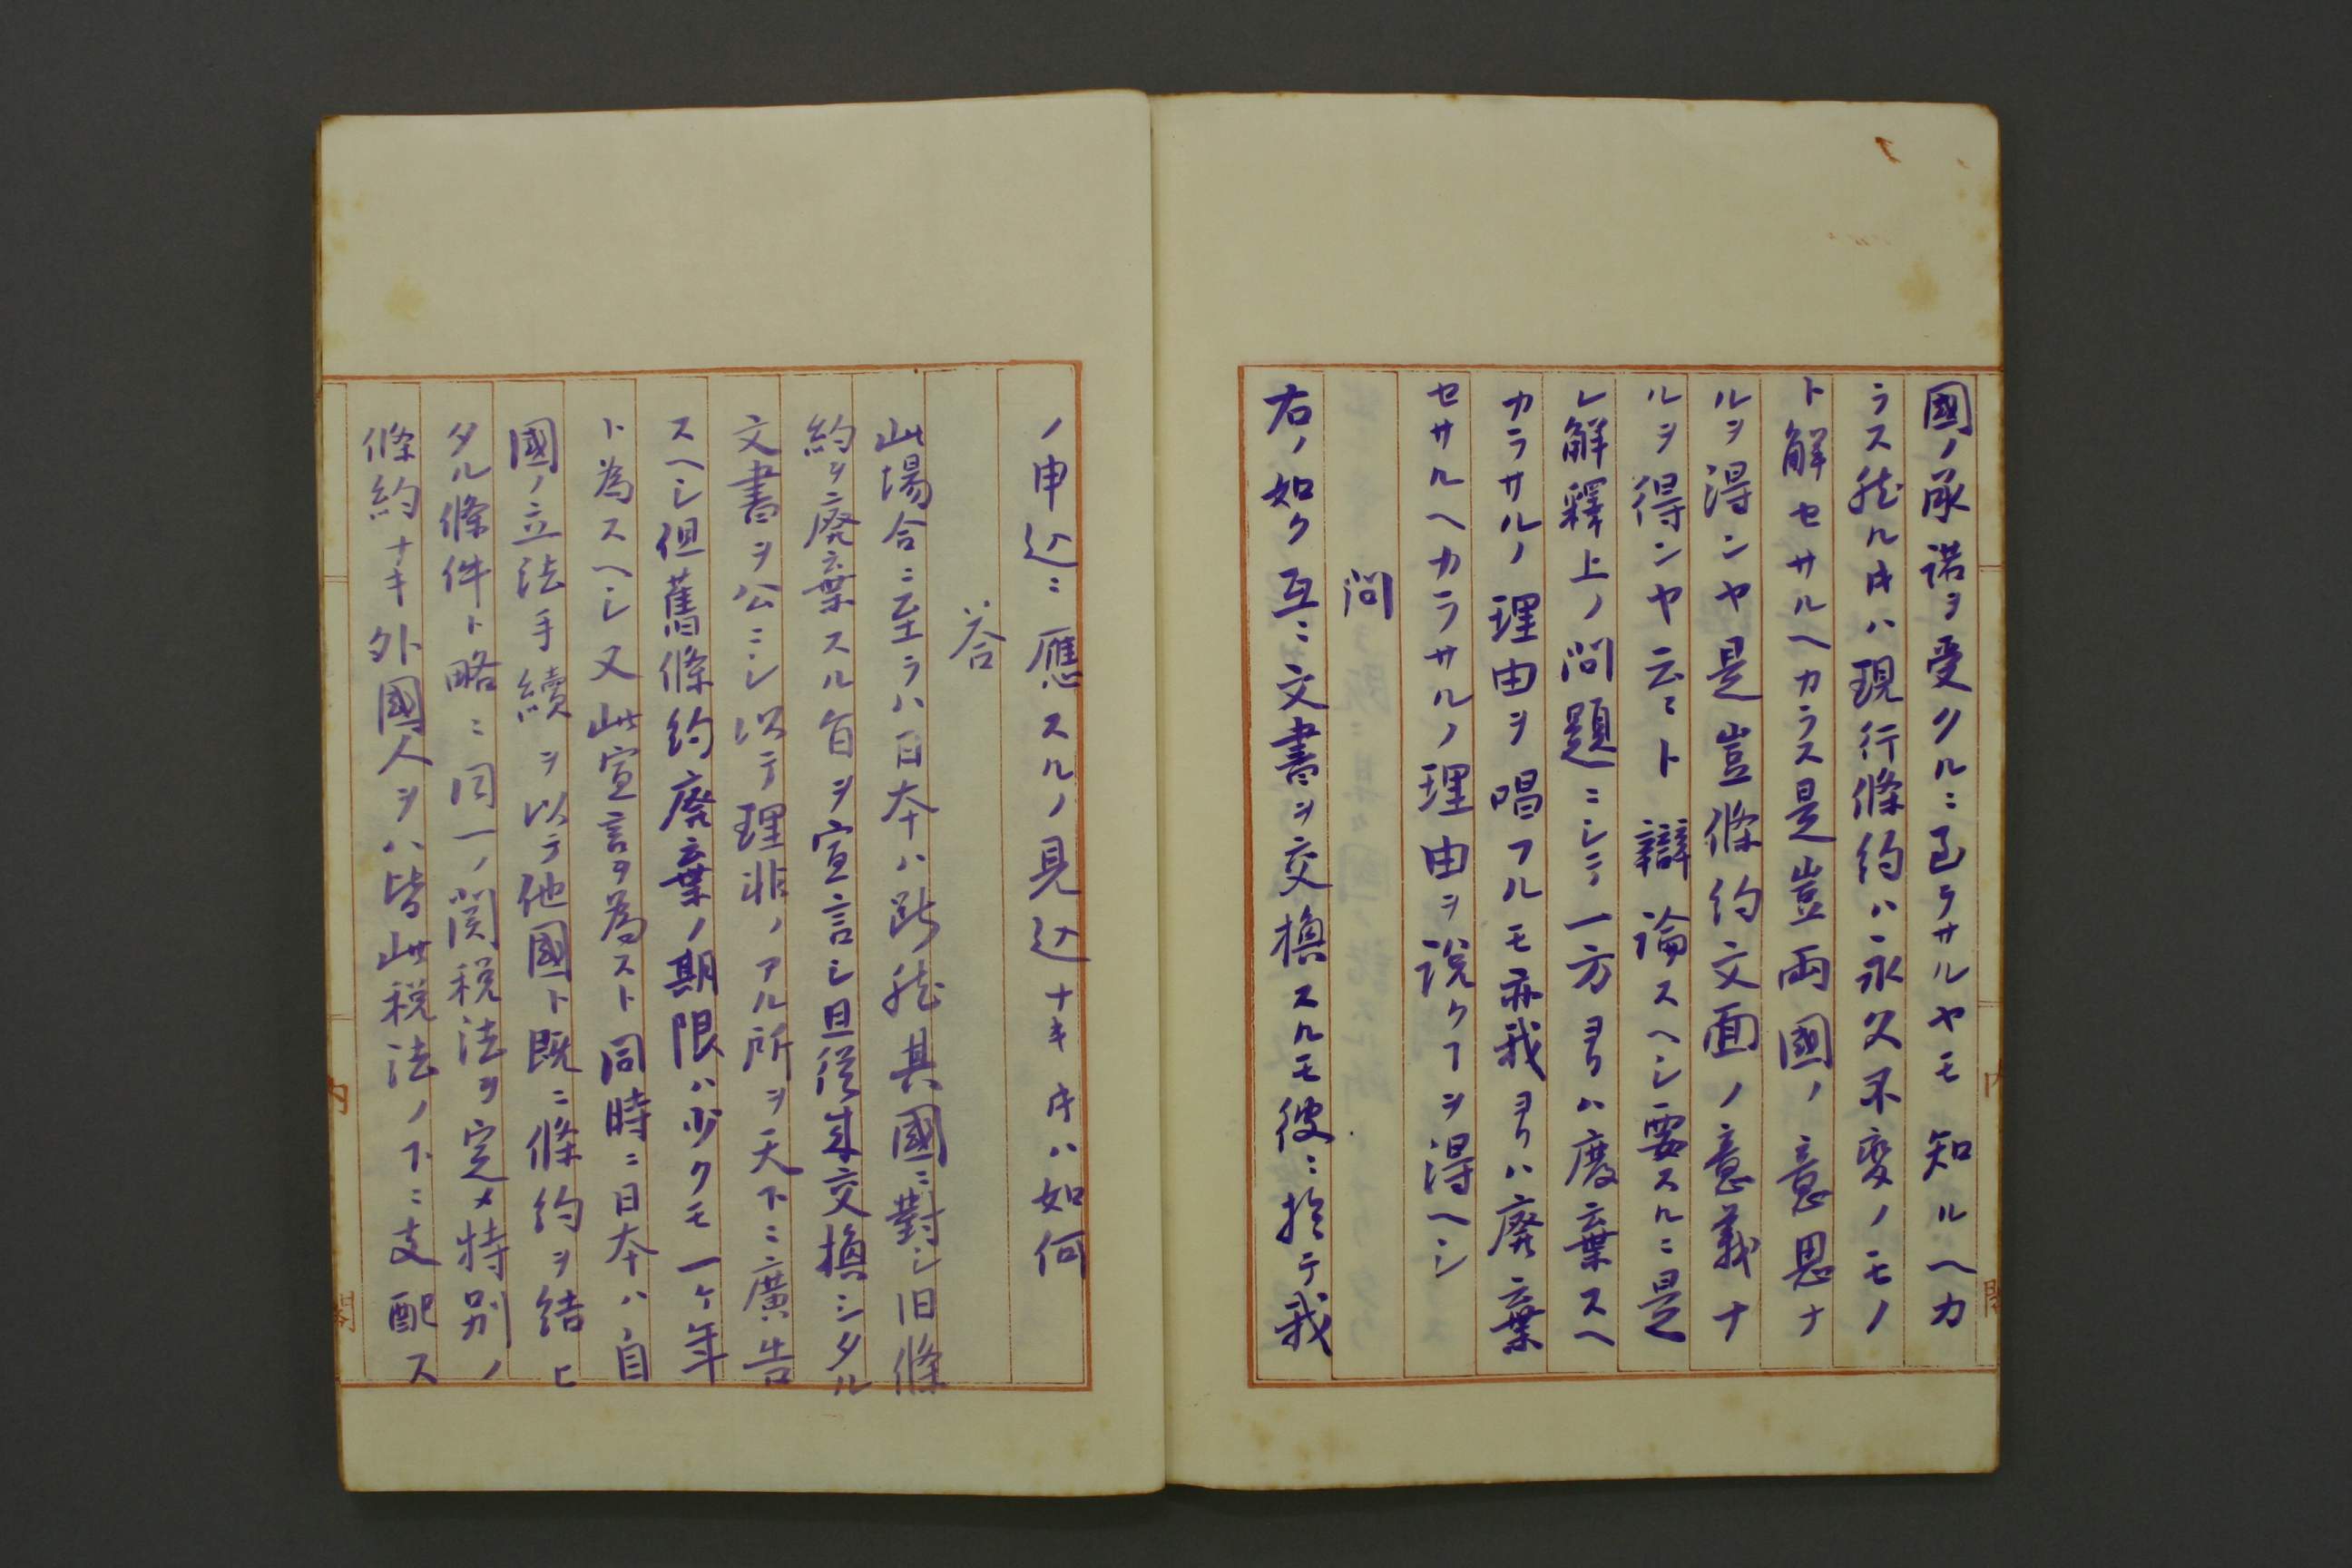 國ノ承諾ヲ受クルニ至ラサルヤモ知ルヘカ
ラス然ル片ハ現行條約ハ永久不変ノモノ
ト解セサルヘカラス是豈両國ノ意思ナ
ルヲ得ンヤ是豈條約文面ノ意義ナ
ルヲ得ンヤ云々ト辯論スヘシ要スルニ是
レ解釋上ノ問題ニシテ一方ヨリハ廢棄スヘ
カラサルノ理由ヲ唱フルモ亦我ヨリハ廃棄
セサルヘカラサルノ理由ヲ説クヿヲ得ヘシ
問
右ノ如ク互ニ文書ヲ交換スルモ彼ニ於テ我
ノ申込ニ應スルノ見込ナキ片ハ如何
答
此場合ニ至ラハ日本ハ断然其國ニ對シ旧條
約ヲ廃棄スル旨ヲ宣言シ且従来交換シタル
文書ヲ公ニシ以テ理非ノアル所ヲ天下ニ廣告
スヘシ但舊條約廃棄ノ期限ハ少クモ一ケ年
ト為スヘシ又此宣言ヲ為スト同時ニ日本ハ自
國ノ立法手續ヲ以テ他國ト既ニ條約ヲ結ヒ
タル條件ト略ニ同一ノ関税法ヲ定メ特別ノ
條約ナキ外國人ヲハ皆此税法ノ下ニ支配ス
内
閣